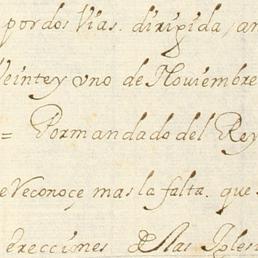 por dos Vias. dirigida, an
Veinte y vno de Nouiembre
= Por mandado del Rey
e Veconoce mas la falta. que s
erecciones de las Igles